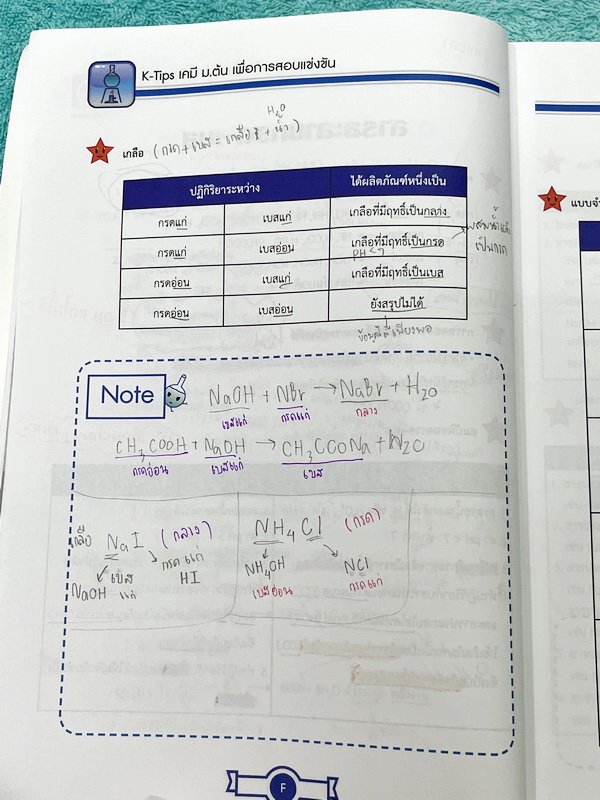 K-Tips เคมี ม.ต้น เพื่อการสอบแข่งขัน
H₂O
เกลือ (กรด + เบส = เกลือ + น้ำ)
ปฏิกิริยาระหว่าง ได้ผลิตภัณฑ์หนึ่งเป็น
กรดแก่ เบสแก่ เกลือที่มีฤทธิ์เป็นกลาง
กรดแก่ เบสอ่อน เกลือที่มีฤทธิ์เป็นกรด
ผสมน้ำแล้ว
เป็นกรด
PH<7
กรดอ่อน เบสแก่ เกลือที่มีฤทธิ์เป็นเบส
กรดอ่อน เบสอ่อน ยังสรุปไม่ได้
ข้อมูลไม่เพียงพอ
Note
NaOH + NBr → NaBr + H₂O
เบสแก่ กรดแก่ กลาง
CH₃COOH + NaOH → CH₃COONa + H₂O
กรดอ่อน เบสแก่ เบส
เกลือ NaI (กลาง)
เบส
แก่
NaOH
กรดแก่
HI
NH₄Cl (กรด)
NH₄OH NCl
เบสอ่อน กรดแก่
F